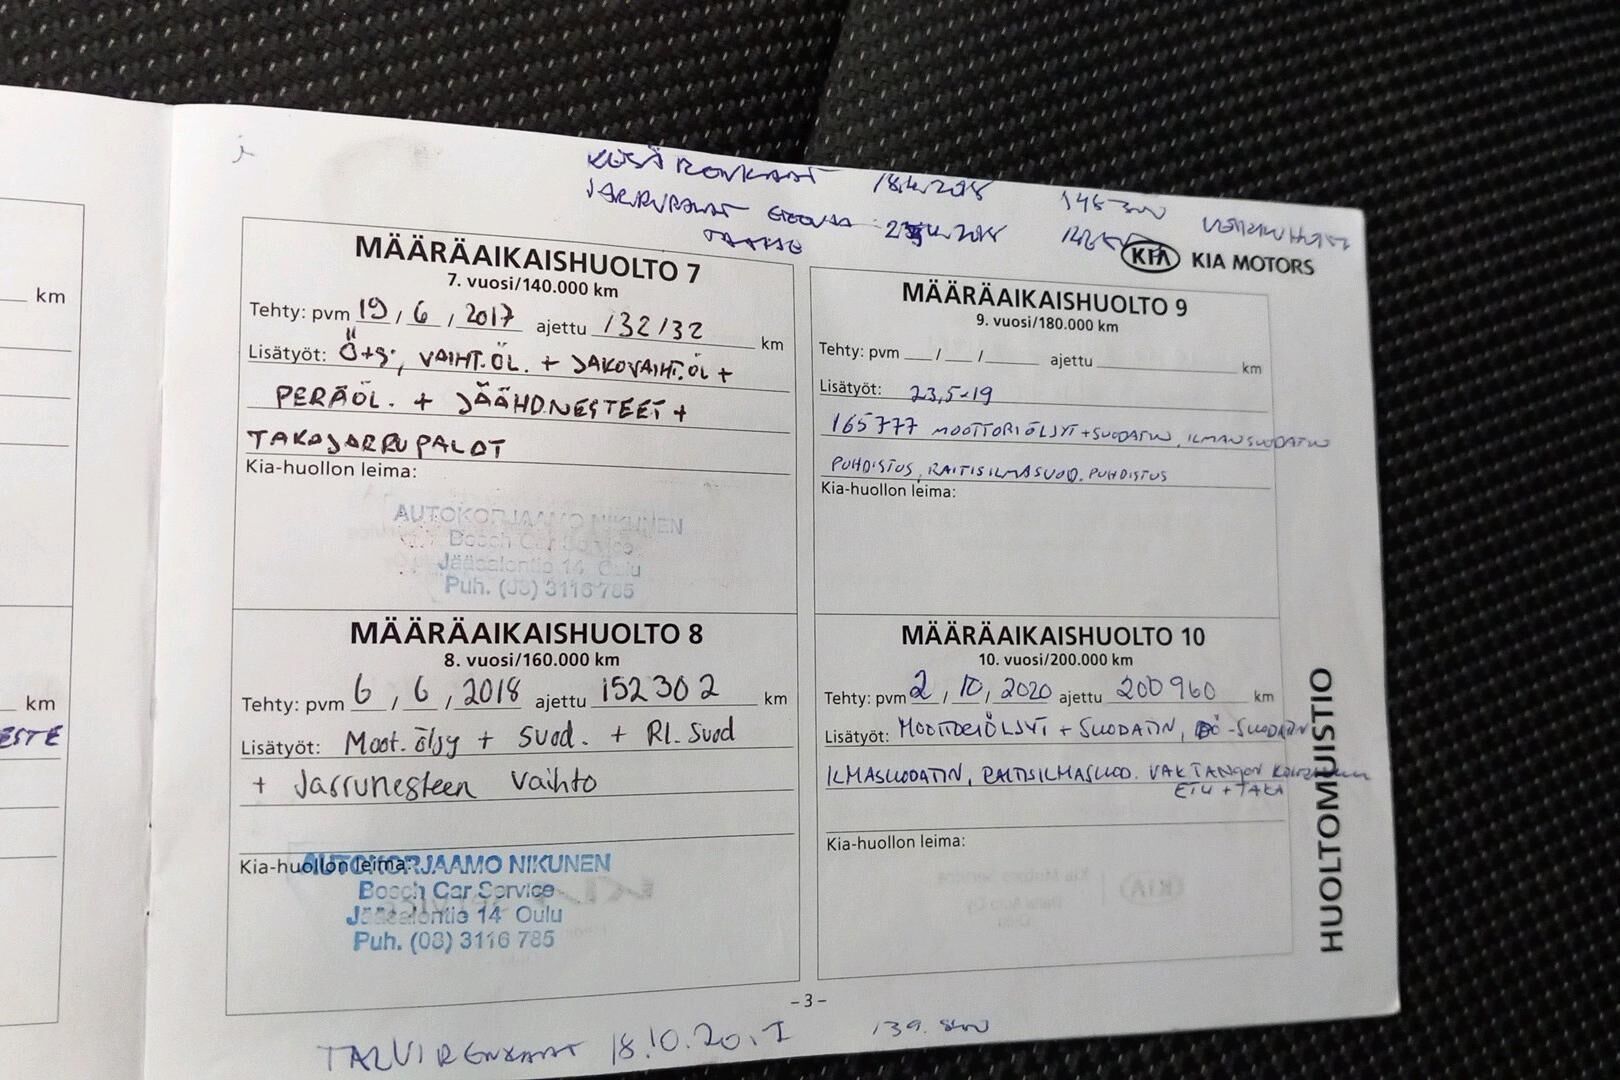 KESÄRENKAAT 18.4.2018 148
JARRUPALAT
TAAKSE
KIA KIA MOTORS
MÄÄRÄAIKAISHUOLTO 7
7. vuosi/140.000 km
Tehty: pvm 19 / 6 / 2017 ajettu 132132 km
Lisätyöt: Ö+s; VAIHT.ÖL. + JAKOVAIHT.ÖL +
PERÄÖL. + JÄÄHD.NESTEET +
TAKAJARRUPALAT
Kia-huollon leima:
AUTOKORJAAMO NIKUNEN
Bosch Car Service
Jääsalontie 14 Oulu
Puh. (08) 3116 785
MÄÄRÄAIKAISHUOLTO 8
8. vuosi/160.000 km
Tehty: pvm 6 / 6 / 2018 ajettu 152 302 km
Lisätyöt: Moot. öljy + suod. + RI. Suod
+ Jarrunesteen vaihto
Kia-huollon leima:
AUTOKORJAAMO NIKUNEN
Bosch Car Service
Jääsalontie 14 Oulu
Puh. (08) 3116 785
MÄÄRÄAIKAISHUOLTO 9
9. vuosi/180.000 km
Tehty: pvm / / ajettu km
Lisätyöt: 23,5-19
165777 MOOTTORIÖLJYT + SUODATIN, ILMANSUODATIN
PUHDISTUS, RAITISILMASUOD. PUHDISTUS
Kia-huollon leima:
MÄÄRÄAIKAISHUOLTO 10
10. vuosi/200.000 km
Tehty: pvm 2 / 10 / 2020 ajettu 200 960 km
Lisätyöt: MOOTTORIÖLJYT + SUODATIN, PÖ -SUODATIN
ILMASUODATIN, RAITISILMASUOD. VAKTANGON
ETU + TAKA
Kia-huollon leima:
HUOLTOMUISTIO
km
km
ESTE
- 3 -
TALVIRENKAAT 18.10.20.7 139.